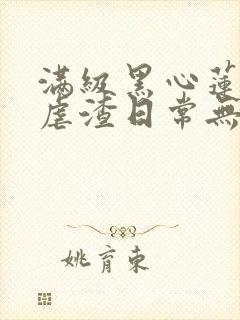 滿級黑心蓮
虐渣日常無
姚育東